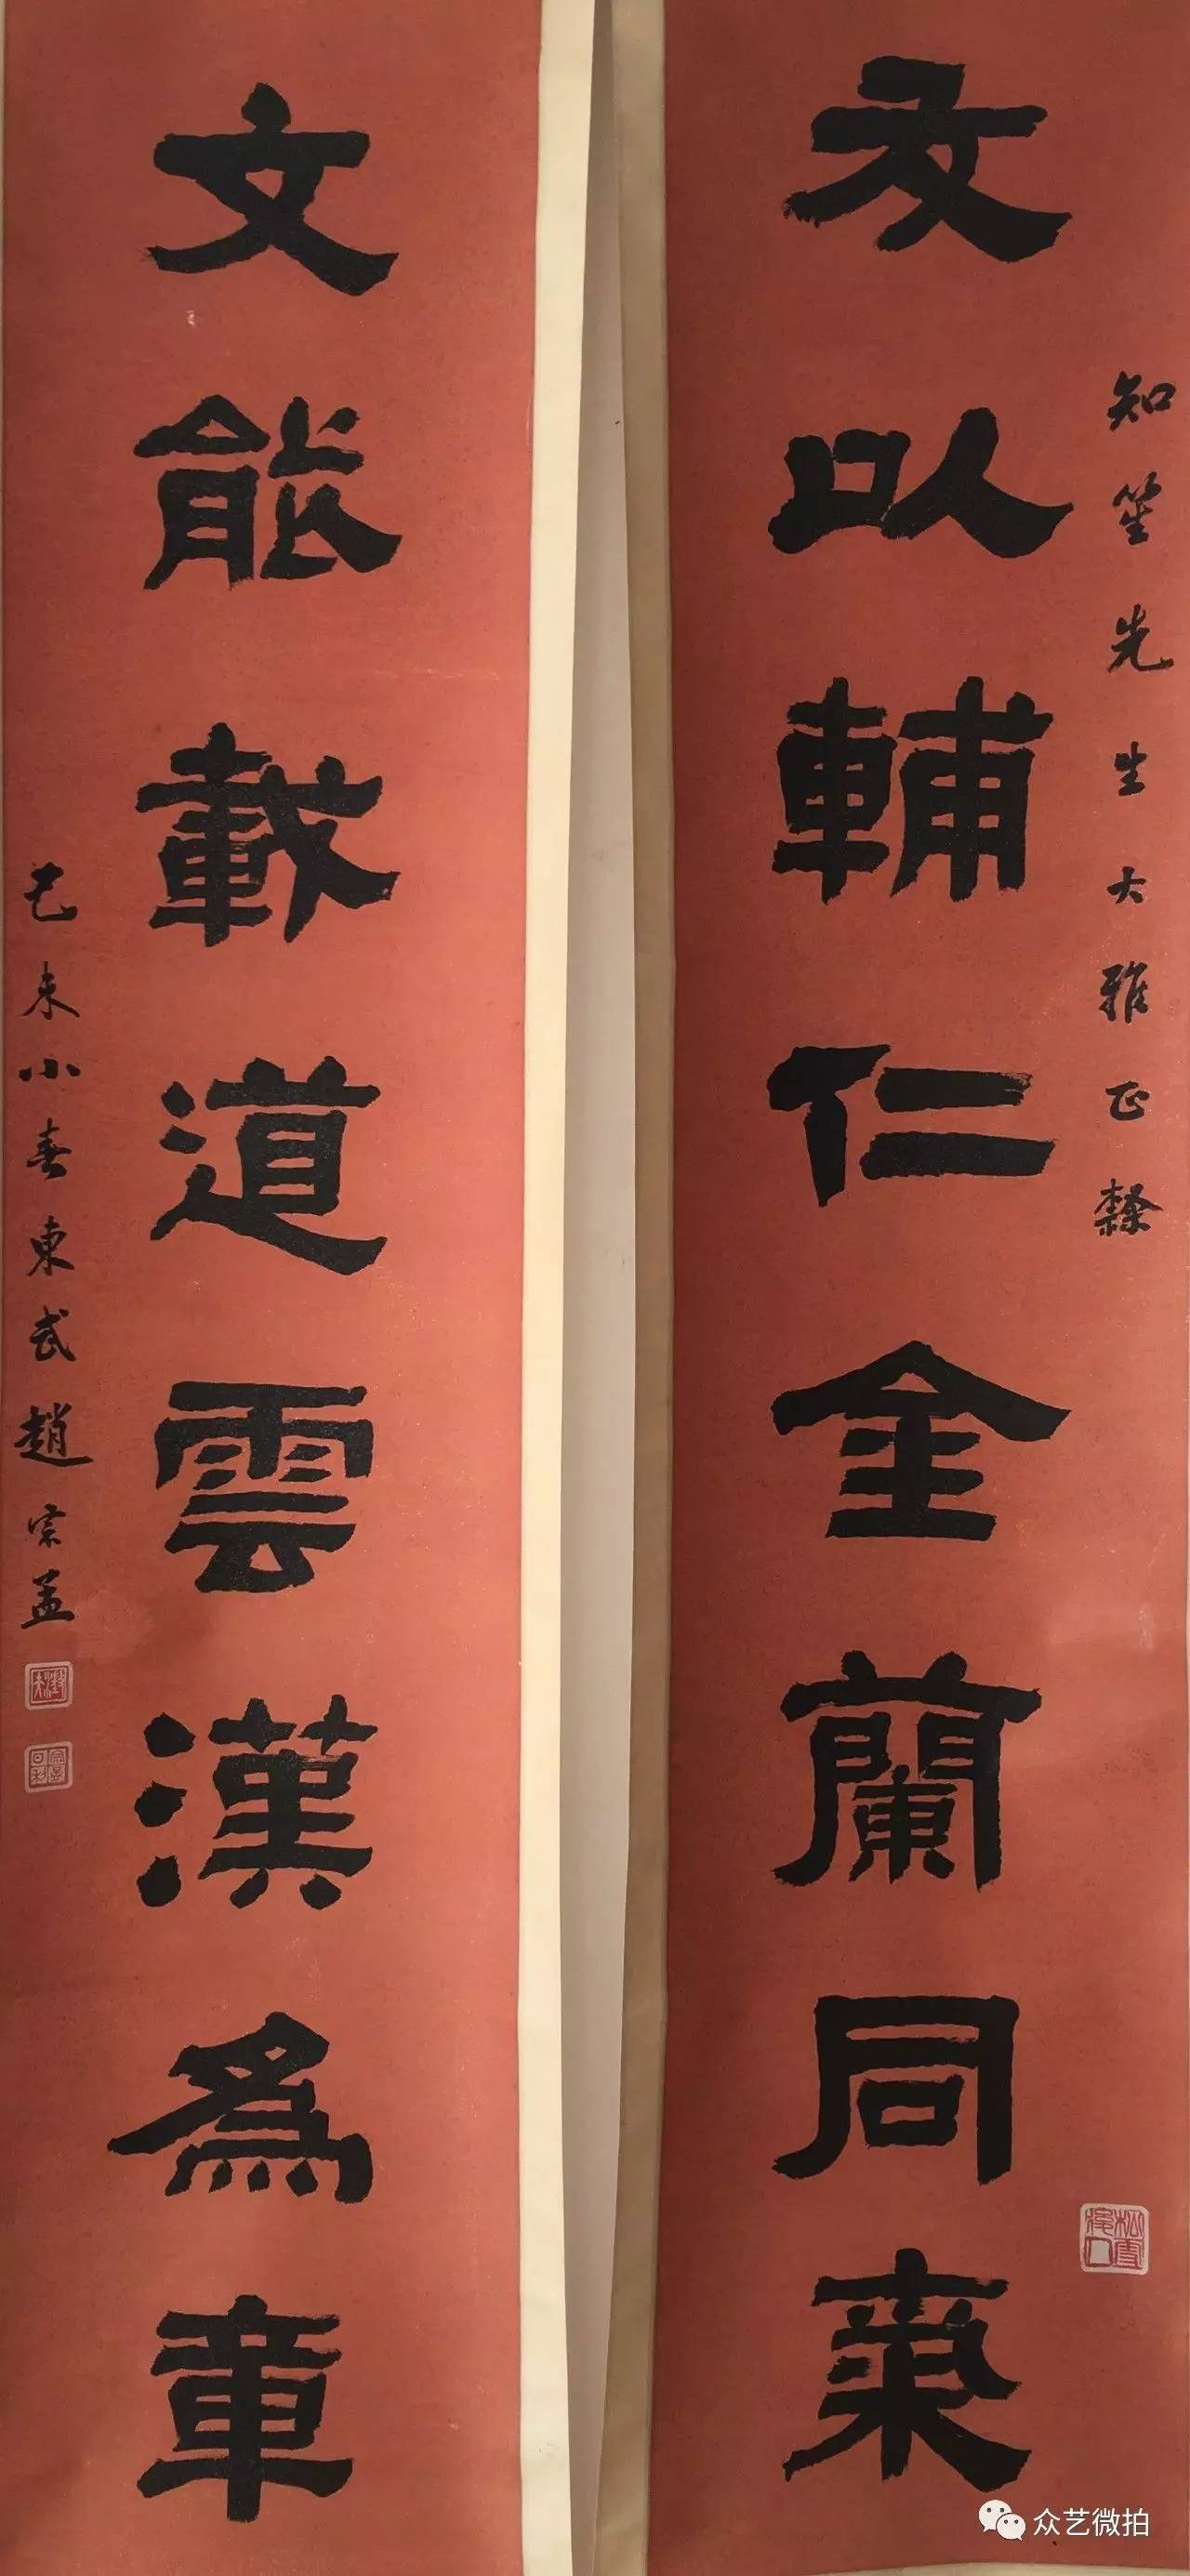 知笙先生大雅正隸
友以輔仁金蘭同
文能載道雲漢為章
己未小春東武趙宗孟
众艺微拍